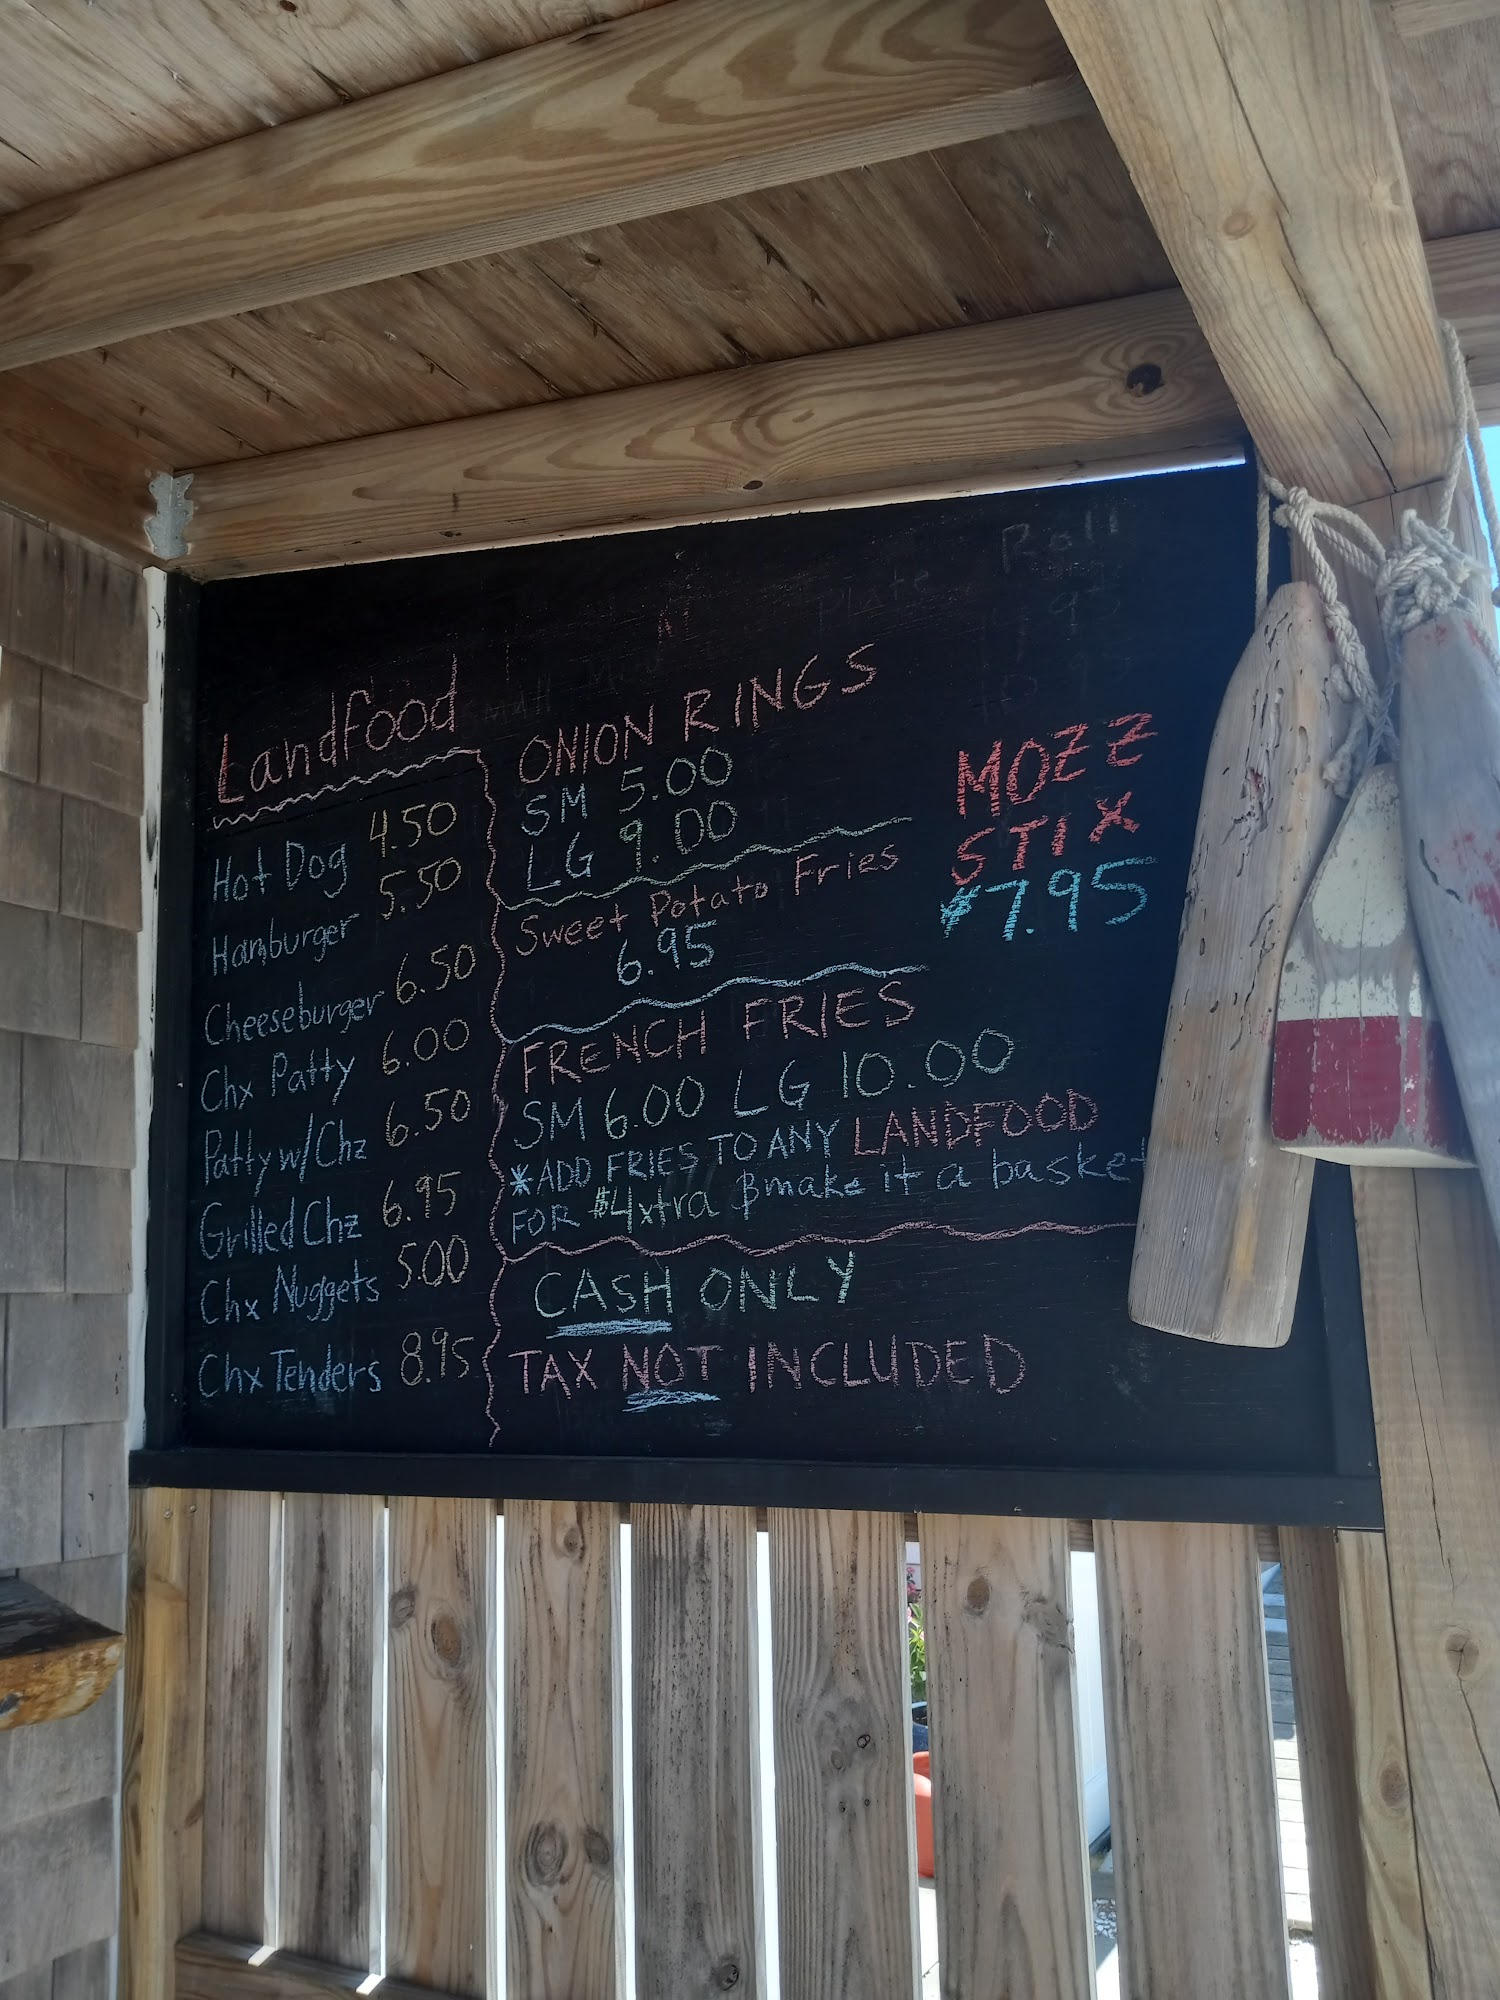 Landfood
Hot Dog 4.50
Hamburger 5.50
Cheeseburger 6.50
Chx Patty 6.00
Patty w/Chz 6.50
Grilled Chz 6.95
Chx Nuggets 5.00
Chx Tenders 8.95
ONION RINGS
SM 5.00
LG 9.00
Sweet Potato Fries
6.95
FRENCH FRIES
SM 6.00 LG 10.00
*ADD FRIES TO ANY LANDFOOD
FOR $4xtra $ make it a basket
CASH ONLY
TAX NOT INCLUDED
MOZZ
STIX
$7.95
Roll
Plate